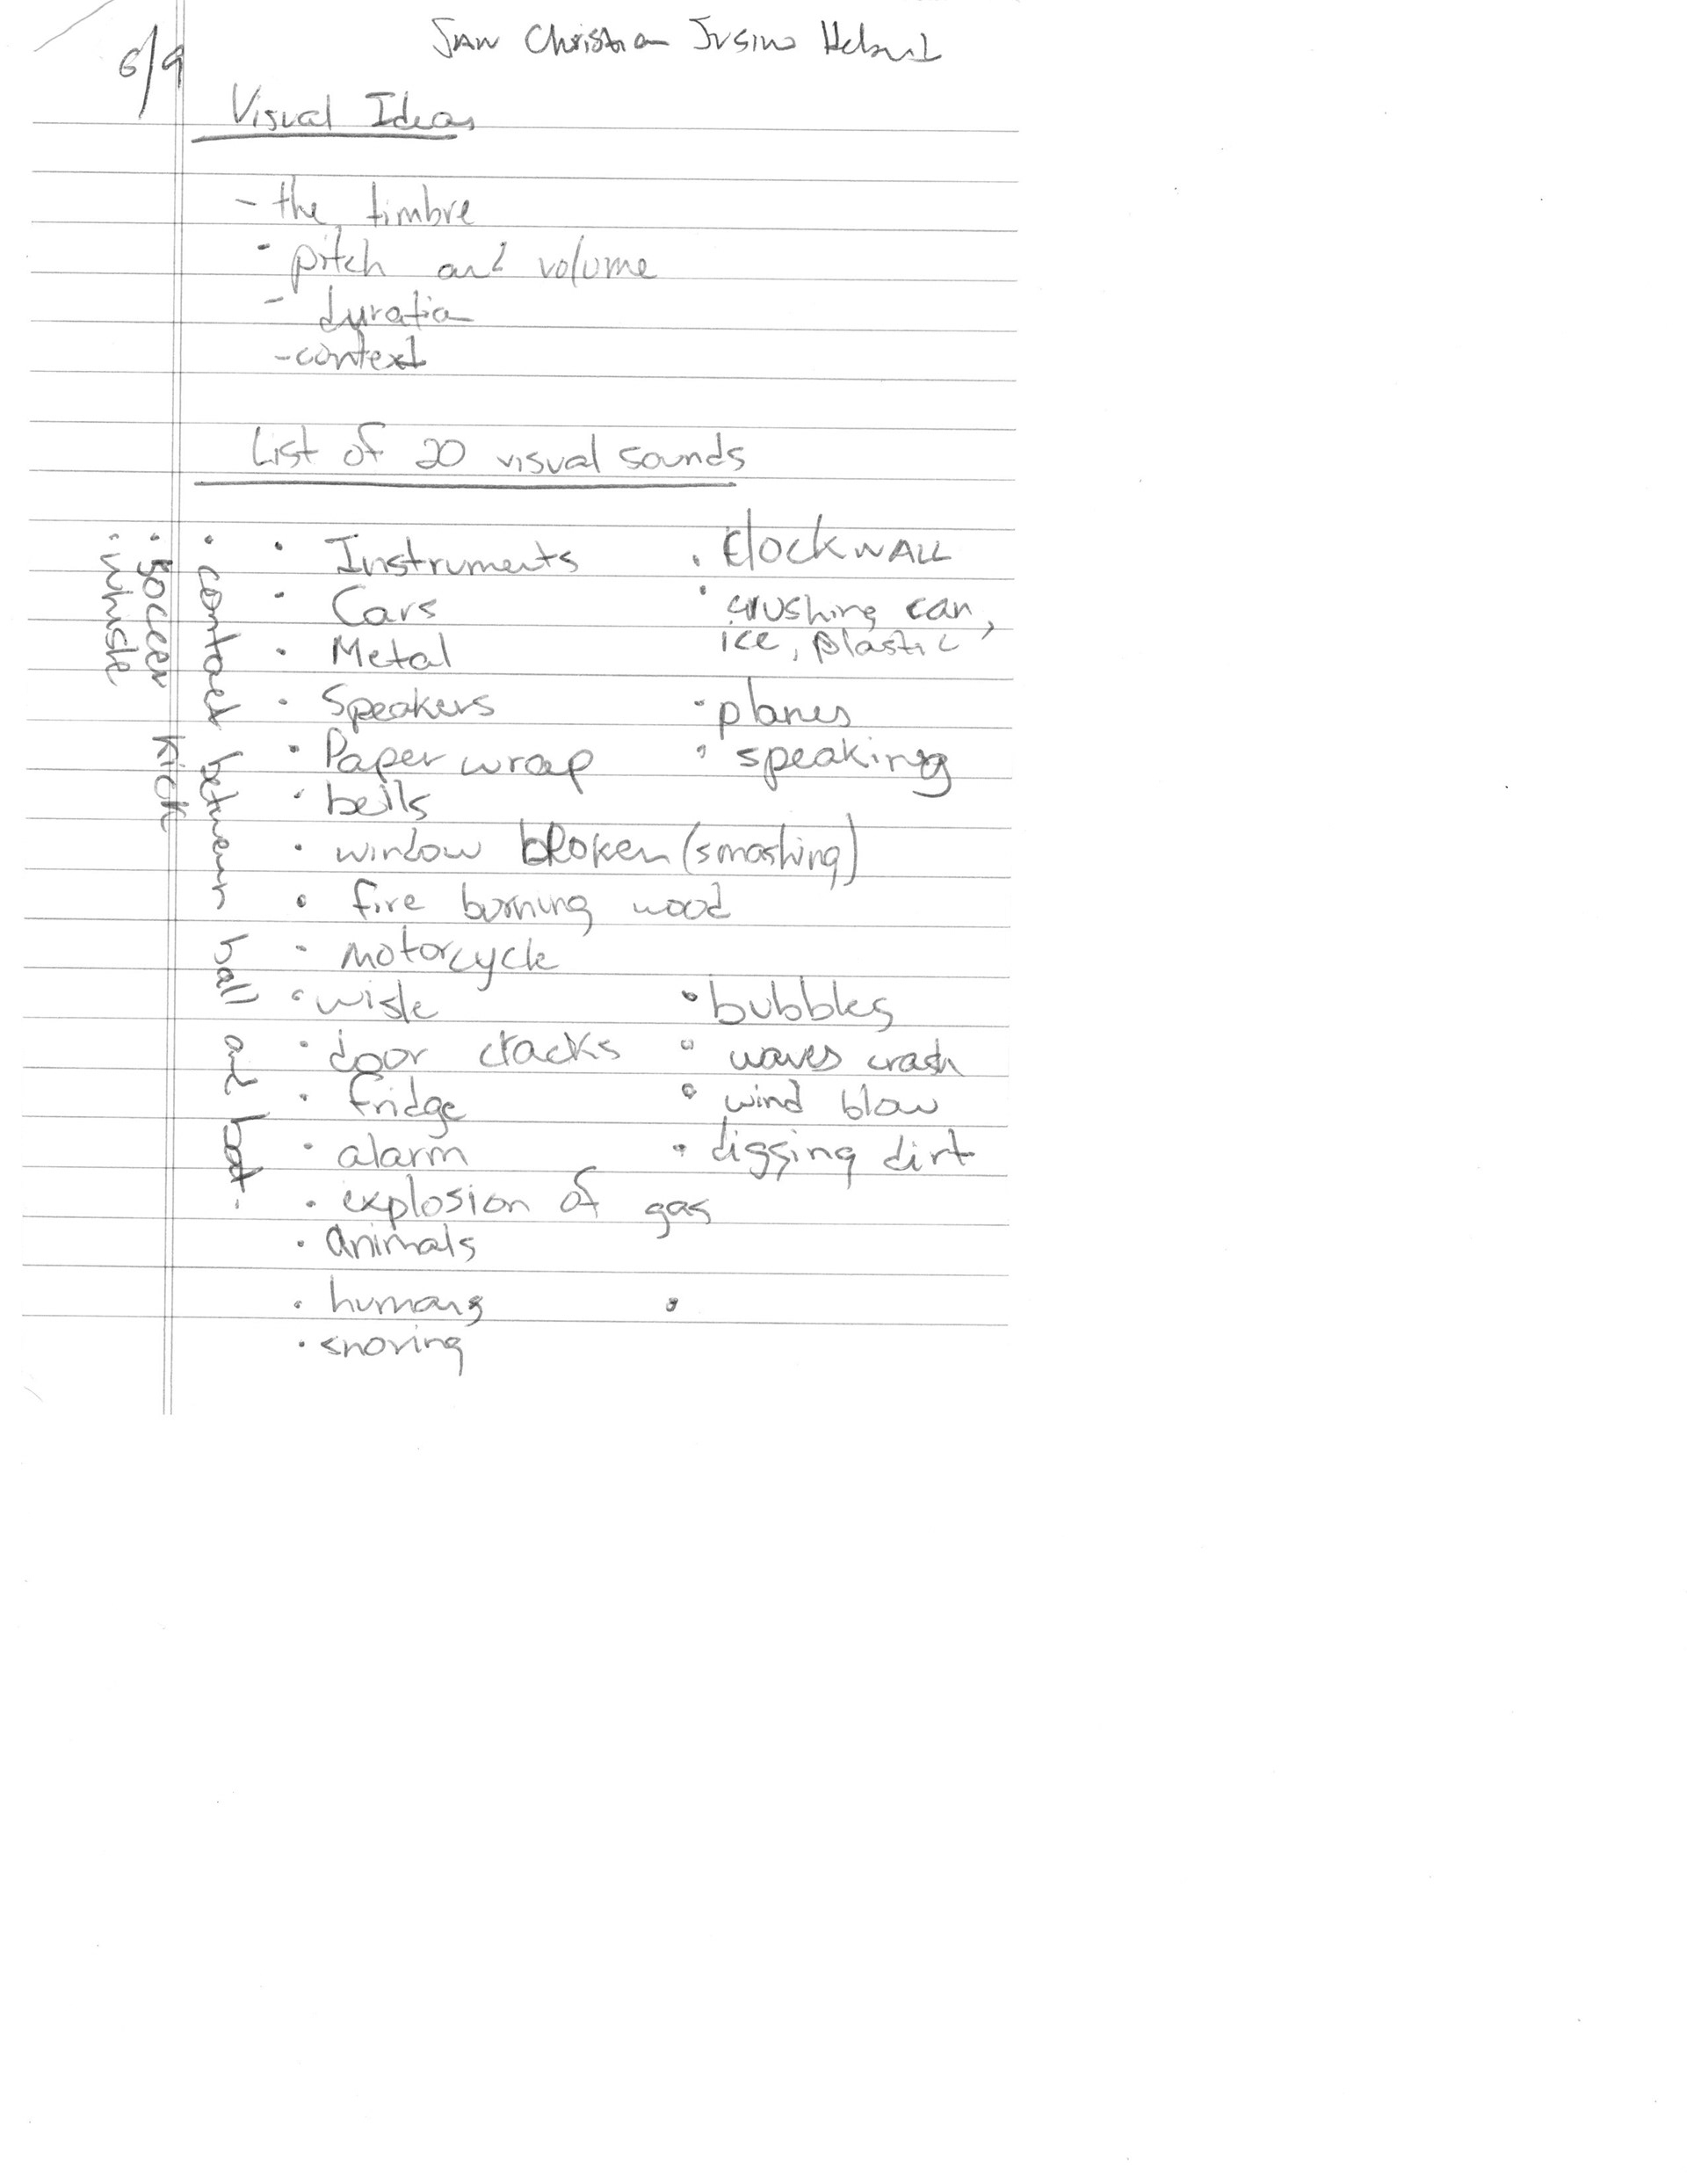 6/9
Jan Christian Jusino
Visual Ideas
- the timbre
- pitch and volume
- duration
- context
List of 20 visual sounds
• Instruments
• Cars
• Metal
• Speakers
• Paper wrap
• bells
• window broken (smashing)
• fire burning wood
• motorcycle
• wisle
• door cracks
• fridge
• alarm
• explosion of gas
• Animals
• humans
• snoring
• clock WALL
• crushing can,
ice, plastic
• planes
• speaking
• bubbles
• waves crash
• wind blow
• digging dirt
•
• contact between ball and bat.
• soccer kick
• whisle